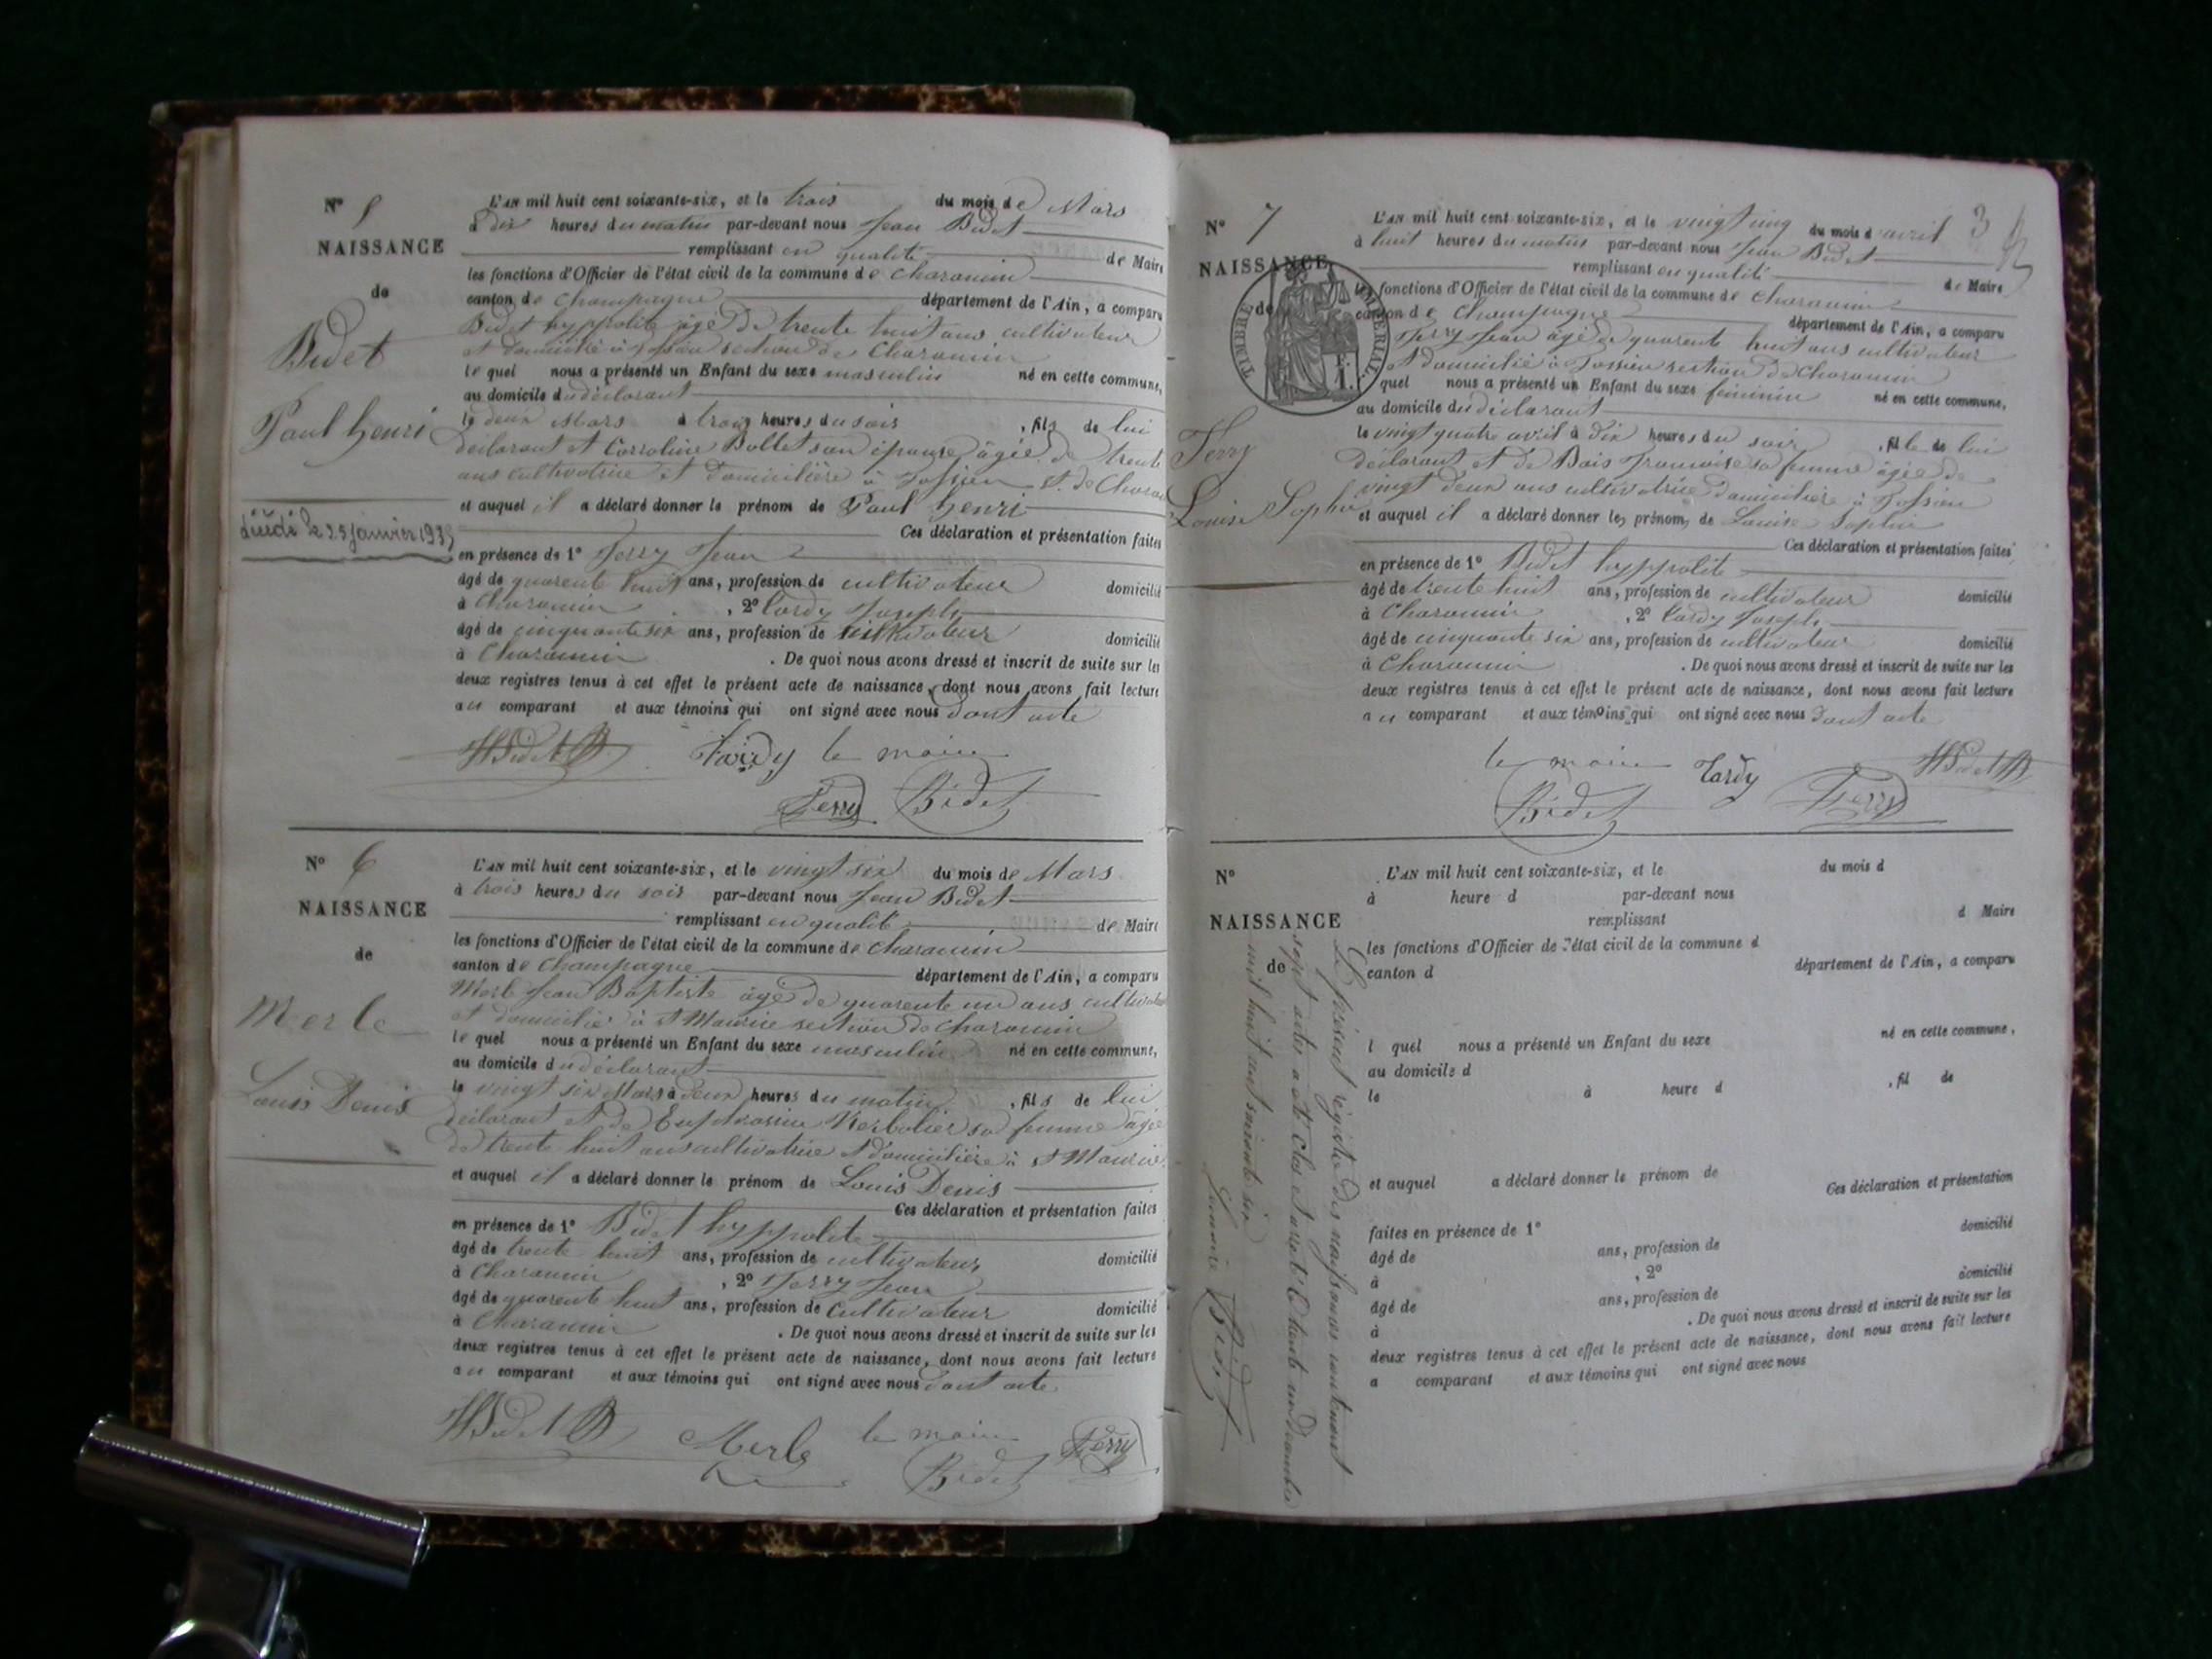 N° 5
NAISSANCE
de
Bidet
Paul henri
décédé le 25 janvier 1939
L'AN mil huit cent soixante-six, et le trois du mois de Mars
à dix heures du matin par-devant nous Jean Bidet
remplissant en qualité de Maire
les fonctions d'Officier de l'état civil de la commune de Charancin
canton de Champagne département de l'Ain, a comparu
Bidet hyppolite âgé de trente huit ans cultivateur
et domicilié à Jossieu section de Charancin
le quel nous a présenté un Enfant du sexe masculin né en cette commune,
au domicile du déclarant
le deux Mars à trois heures du soir, fils de lui
déclarant et Carroline Bollet son épouse âgée de trente
ans cultivatrice et domicilière à Jossieu St. de Charan
et auquel il a déclaré donner le prénom de Paul henri
Ces déclaration et présentation faites
en présence de 1° Ferry Jean
âgé de quarente huit ans, profession de cultivateur domicilié
à Charancin, 2° Tardy Joseph
âgé de cinquante six ans, profession de cultivateur domicilié
à Charancin. De quoi nous avons dressé et inscrit de suite sur les
deux registres tenus à cet effet le présent acte de naissance, dont nous avons fait lecture
au comparant et aux témoins qui ont signé avec nous dont acte
HBidet Tardy le maire
Ferry Bidet
N° 6
NAISSANCE
de
Merle
Louis Denis
L'AN mil huit cent soixante-six, et le vingt six du mois de Mars
à trois heures du soir par-devant nous Jean Bidet
remplissant en qualité de Maire
les fonctions d'Officier de l'état civil de la commune de Charancin
canton de Champagne département de l'Ain, a comparu
Merle Jean Baptiste âgé de quarente un ans cultivateur
et domicilié à St Maurice section de Charancin
le quel nous a présenté un Enfant du sexe masculin né en cette commune,
au domicile du déclarant
le vingt six Mars à deux heures du matin, fils de lui
déclarant et de Euphrosine Kerbolier sa femme âgée
de trente huit ans cultivatrice et domicilière à St Maurice
et auquel il a déclaré donner le prénom de Louis Denis
Ces déclaration et présentation faites
en présence de 1° Bidet hyppolite
âgé de trente huit ans, profession de cultivateur domicilié
à Charancin, 2° Ferry Jean
âgé de quarente huit ans, profession de cultivateur domicilié
à Charancin. De quoi nous avons dressé et inscrit de suite sur les
deux registres tenus à cet effet le présent acte de naissance, dont nous avons fait lecture
au comparant et aux témoins qui ont signé avec nous dont acte
HBidet Merle le maire Ferry
Bidet
3
N° 7
NAISSANCE
de
TIMBRE IMPÉRIAL
Ferry
Louise Sophie
L'AN mil huit cent soixante-six, et le vingt cinq du mois d avril
à huit heures du matin par-devant nous Jean Bidet
remplissant en qualité de Maire
les fonctions d'Officier de l'état civil de la commune de Charancin
canton de Champagne département de l'Ain, a comparu
Ferry Jean âgé de quarente huit ans cultivateur
et domicilié à Jossieu section de Charancin
quel nous a présenté un Enfant du sexe féminin né en cette commune,
au domicile du déclarant
le vingt quatre avril à dix heures du soir, fille de lui
déclarant et de Bois Francoise sa femme âgée de
vingt deux ans cultivatrice domicilière à Jossieu
et auquel il a déclaré donner les prénoms de Louise Sophie
Ces déclaration et présentation faites
en présence de 1° Bidet hyppolite
âgé de trente huit ans, profession de cultivateur domicilié
à Charancin, 2° Tardy Joseph
âgé de cinquante six ans, profession de cultivateur domicilié
à Charancin. De quoi nous avons dressé et inscrit de suite sur les
deux registres tenus à cet effet le présent acte de naissance, dont nous avons fait lecture
au comparant et aux témoins qui ont signé avec nous dont acte
le maire Tardy HBidet
Bidet Ferry
N°
NAISSANCE
de
L'AN mil huit cent soixante-six, et le du mois d
à heure d par-devant nous
remplissant d Maire
les fonctions d'Officier de l'état civil de la commune d
canton d département de l'Ain, a comparu
l quel nous a présenté un Enfant du sexe né en cette commune,
au domicile d
le à heure d, fil de
et auquel a déclaré donner le prénom de
Ces déclaration et présentation
faites en présence de 1°
âgé de ans, profession de domicilié
à, 2°
âgé de ans, profession de domicilié
à. De quoi nous avons dressé et inscrit de suite sur les
deux registres tenus à cet effet le présent acte de naissance, dont nous avons fait lecture
a comparant et aux témoins qui ont signé avec nous
Le présent régistre des naissances contenant
sept actes a été clos et arrêté le trente un décembre
mil huit cent soixante six
le maire Bidet